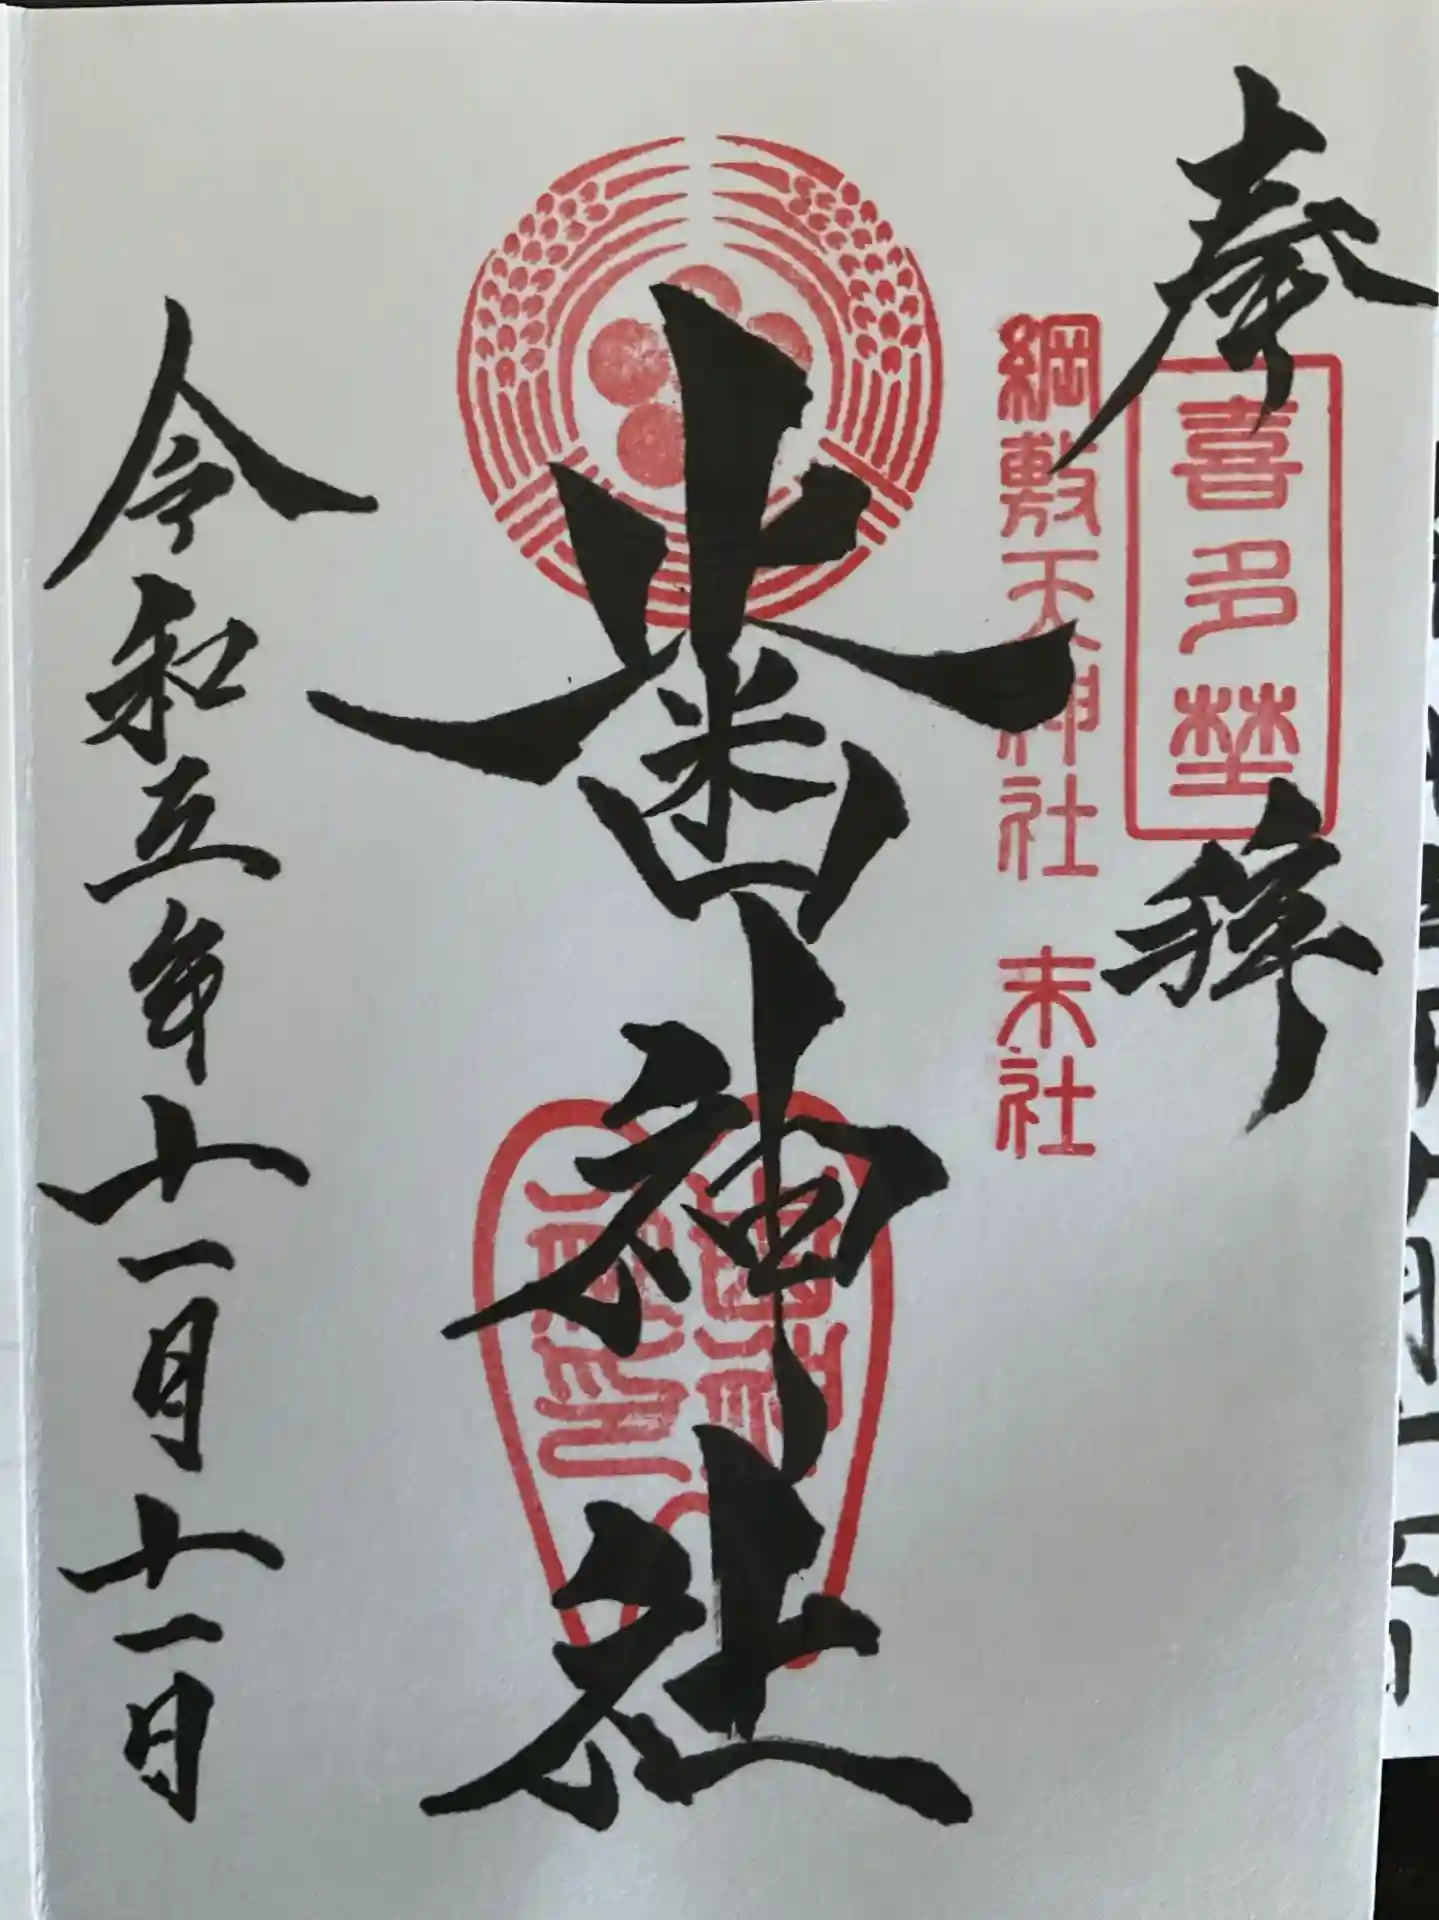 奉拝
喜多埜
綱敷天神社 末社
歯神社
令和五年十一月十一日